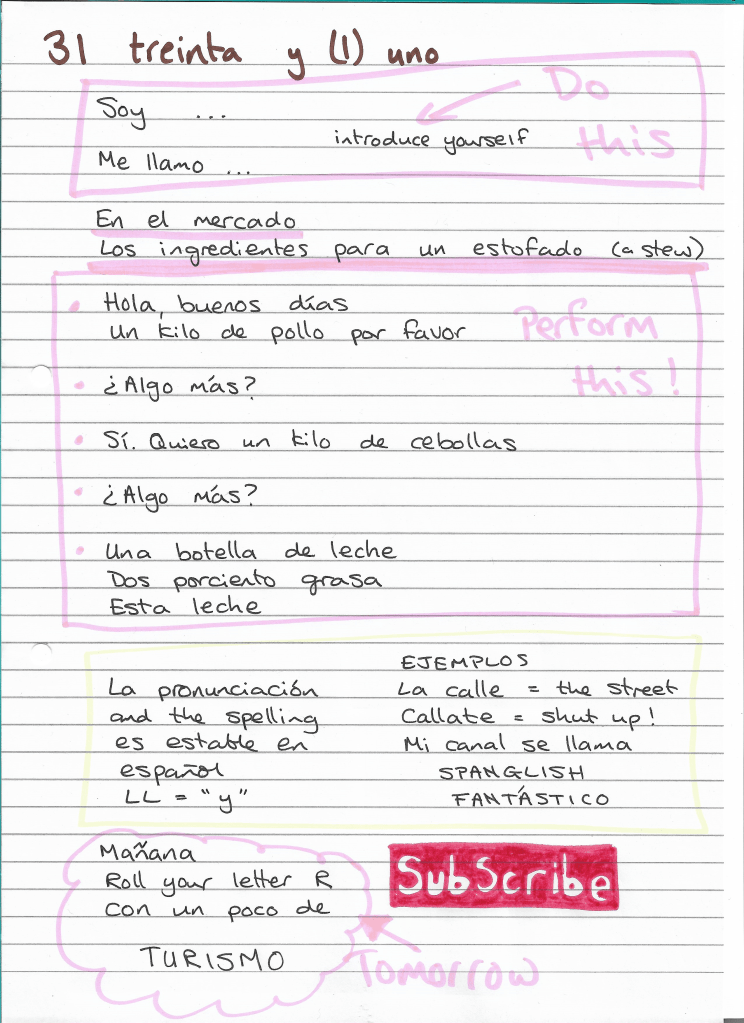 31 treinta y (1) uno
Do
this
Soy ...
introduce yourself
Me llamo ...
En el mercado
Los ingredientes para un estofado (a stew)
Perform
this!
• Hola, buenos días
un kilo de pollo por favor
• ¿Algo más?
• Sí. Quiero un kilo de cebollas
• ¿Algo más?
• Una botella de leche
Dos porciento grasa
Esta leche
La pronunciación
and the spelling
es estable en
español
LL = "y"
EJEMPLOS
La calle = the street
Callate = shut up!
Mi canal se llama
SPANGLISH
FANTÁSTICO
Mañana
Roll your letter R
con un poco de
TURISMO
Subscribe
Tomorrow